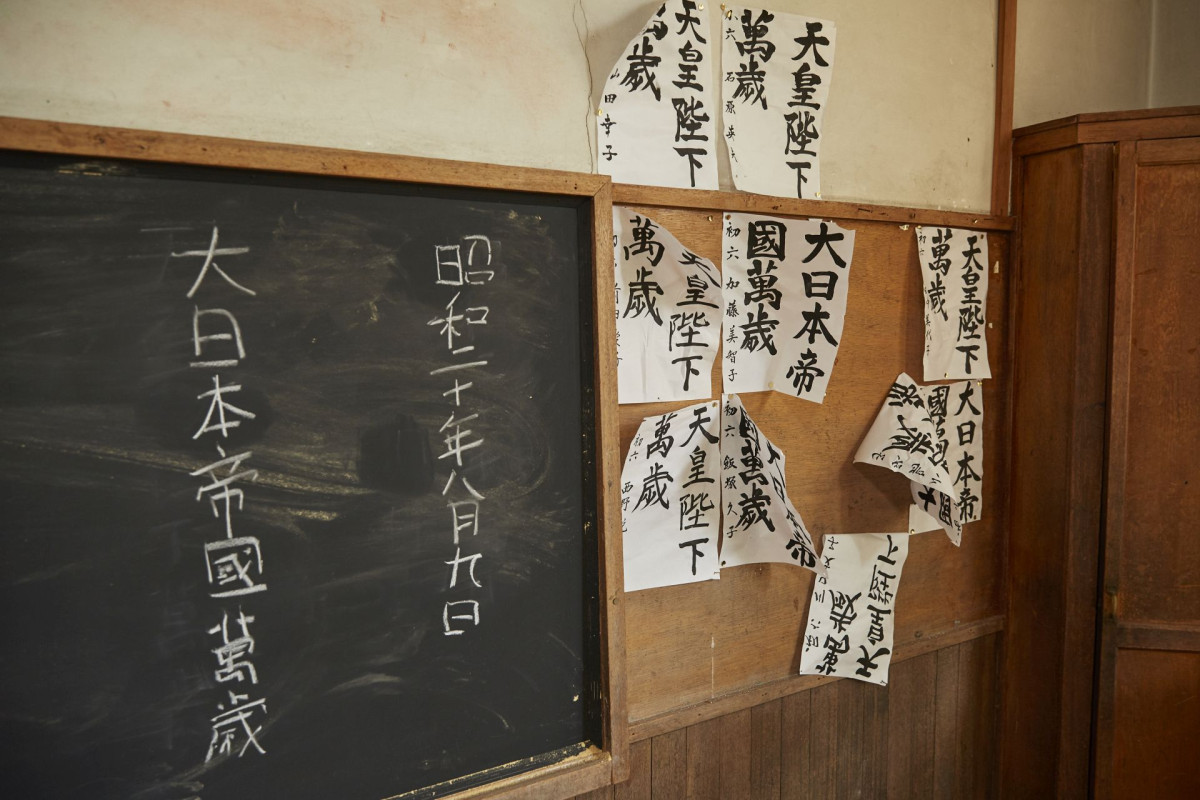 昭和二十年八月九日
大日本帝國萬歳
天皇陛下
萬歳
初六 石原英
天皇陛下
萬歳
山田幸子
大日本帝
國萬歳
初六 加藤美智子
天皇陛下
萬歳
天皇陛下
萬歳
天皇陛下
萬歳
初六 西野
帝
國萬歳
初六 飯塚久子
大日本帝
國
天皇陛下
萬歳
初六 川